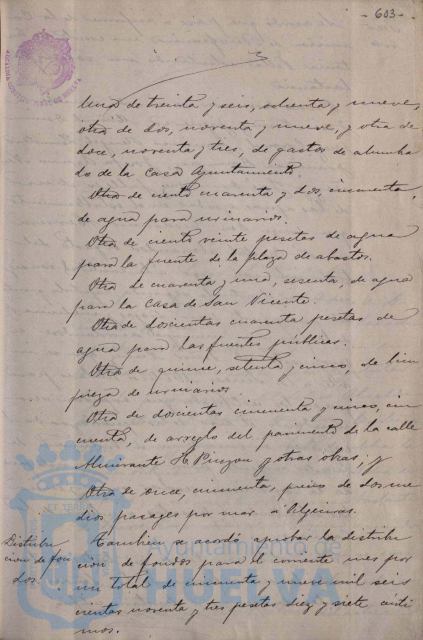 - 603 -
Una de treinta y seis, ochenta y nueve,
otra de dos, noventa y nueve, y otra de
doce, noventa y tres, de gastos de alumbra
do de la Casa Ayuntamiento.
Otra de ciento cuarenta y dos, cincuenta,
de agua para urinarios.
Otra de ciento veinte pesetas de agua
para la fuente de la plaza de abastos.
Otra de cuarenta y una, sesenta, de agua
para la Casa de San Vicente.
Otra de doscientas cuarenta pesetas de
agua para las fuentes publicas.
Otra de quince, setenta y cinco, de lim
pieza de urinarios
Otra de doscientas cincuenta y cinco, cin
cuenta, de arreglo del pavimento de la calle
Almirante H. Pinzon y otras obras; y
Otra de once, cincuenta, precio de dos me
dios pasages por mar a Algeciras.
Distribu
cion de fon
dos.
Tambien se acordó aprobar la distribu
cion de fondos para el corriente mes por
un total de cincuenta y nueve mil seis
cientas noventa y tres pesetas diez y siete centi
mos.
Ayuntamiento de
HUELVA